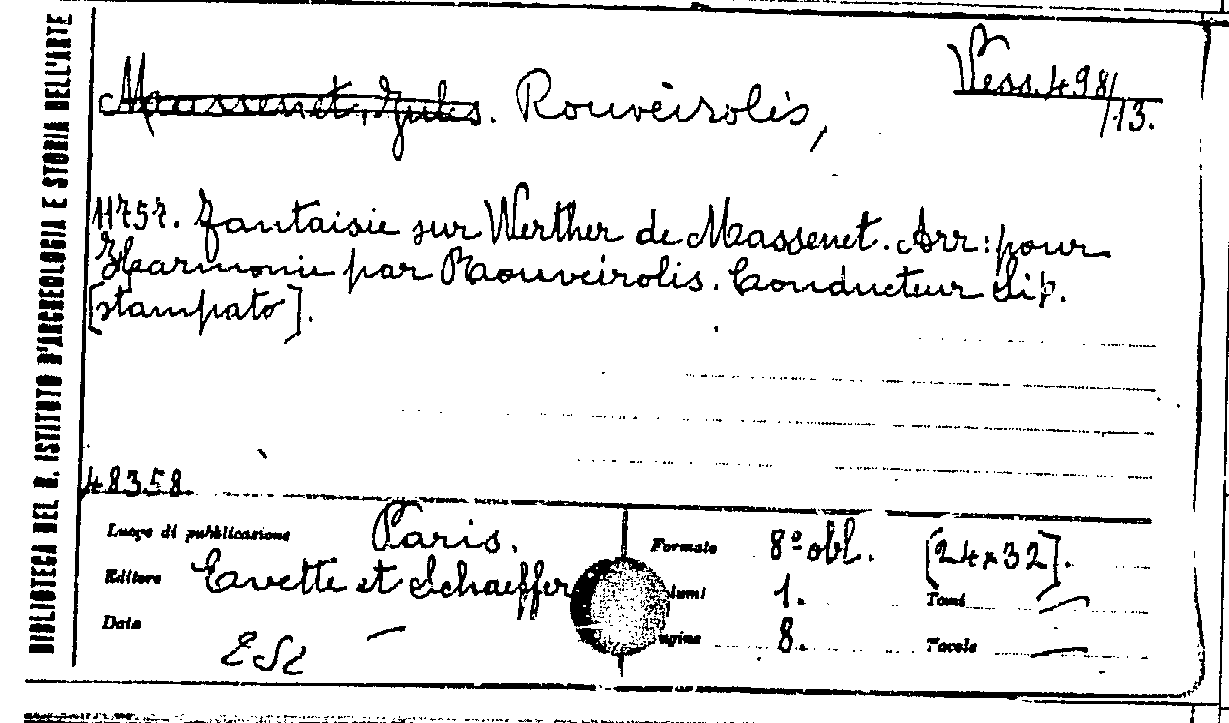 BIBLIOTECA DEL R. ISTITUTO D'ARCHEOLOGIA E STORIA DELL'ARTE
Vess. 498/13.
Massenet, Jules. Rouveirolis,
11757. Fantaisie sur Werther de Massenet. Arr: pour
Harmonie par Rouveirolis. Conducteur Sip.
[stampato].
48358
Luogo di pubblicazione Paris.
Formato 8º obl. [24x32].
Editore Cavette et Schaeffer
lumi 1.
Tomi —
Data —
agine 8.
Tavole —